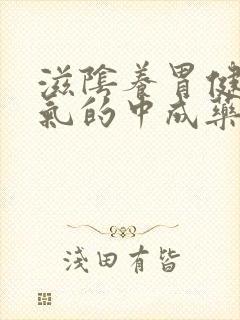 滋陰養胃健
氣的中成藥
淺田有皆